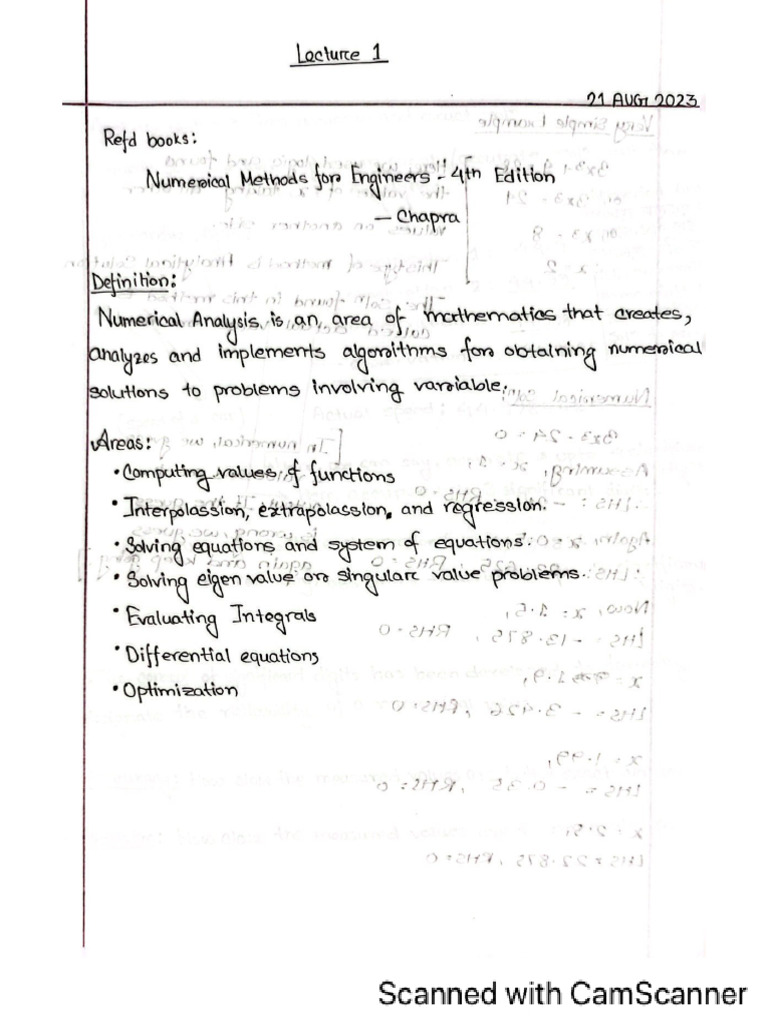 Lecture 1
21 AUG 2023
Refd books:
Numerical Methods for Engineers - 4th Edition
— Chapra
Definition:
Numerical Analysis is an area of mathematics that creates,
analyzes and implements algorithms for obtaining numerical
solutions to problems involving variable.
Areas:
• Computing values of functions
• Interpolassion, extrapolassion, and regression.
• Solving equations and system of equations.
• Solving eigen value or singular value problems.
• Evaluating Integrals
• Differential equations
• Optimization
Scanned with CamScanner